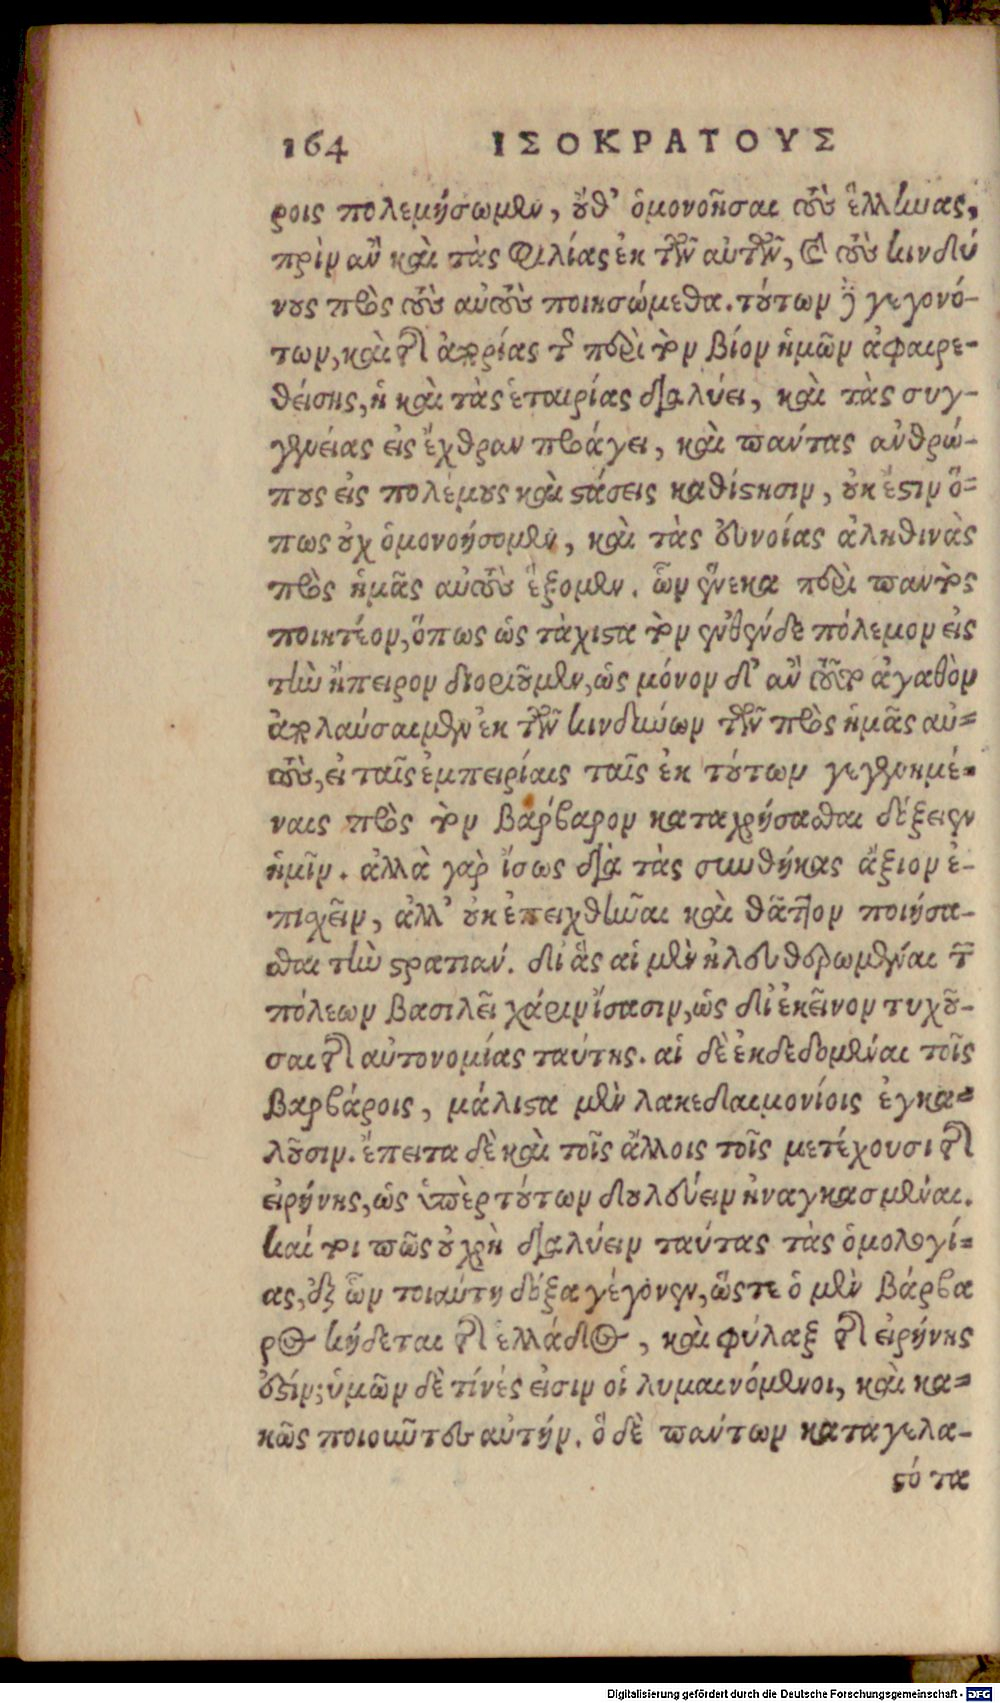 164 ΙΣΟΚΡΑΤΟΥΣ
ροις πολεμήσωμεν, οὔθ' ὁμονοῆσαι τοὺς ἕλληνας,
πρὶν ἂν καὶ τὰς φιλίας ἐκ τῶν αὐτῶν, καὶ τοὺς κινδύ
νους πρὸς τοὺς αὐτοὺς ποιησώμεθα. τούτων δὲ γεγονό-
των, καὶ τῆς ἀπορίας τῆς περὶ τὸν βίον ἡμῶν ἀφαιρε-
θείσης, ἣ καὶ τὰς ἑταιρίας διαλύει, καὶ τὰς συγ-
γενείας εἰς ἔχθραν προάγει, καὶ πάντας ἀνθρώ-
πους εἰς πολέμους καὶ στάσεις καθίστησιν, οὐκ ἔστιν ὅ-
πως οὐχ ὁμονοήσομεν, καὶ τὰς εὐνοίας ἀληθινὰς
πρὸς ἡμᾶς αὐτοὺς ἕξομεν. ὧν ἕνεκα περὶ παντὸς
ποιητέον, ὅπως ὡς τάχιστα τὸν ἐνθένδε πόλεμον εἰς
τὴν ἤπειρον διοριοῦμεν, ὡς μόνον δ' ἂν τοῦτο ἀγαθὸν
ἀπολαύσαιμεν ἐκ τῶν κινδύνων τῶν πρὸς ἡμᾶς αὐ-
τοὺς, εἰ ταῖς ἐμπειρίαις ταῖς ἐκ τούτων γεγενημέ-
ναις πρὸς τὸν βάρβαρον καταχρήσασθαι δόξειεν
ἡμῖν. ἀλλὰ γὰρ ἴσως διὰ τὰς συνθήκας ἄξιον ἐ-
πισχεῖν, ἀλλ' οὐκ ἐπειχθῆναι καὶ θᾶττον ποιήσα-
σθαι τὴν στρατιάν. δι' ἃς αἱ μὲν ἠλευθερωμέναι τῶν
πόλεων βασιλεῖ χάριν ἴσασιν, ὡς δι' ἐκεῖνον τυχοῦ-
σαι τῆς αὐτονομίας ταύτης. αἱ δὲ ἐκδεδομέναι τοῖς
βαρβάροις, μάλιστα μὲν λακεδαιμονίοις ἐγκα-
λοῦσιν. ἔπειτα δὲ καὶ τοῖς ἄλλοις τοῖς μετέχουσι τῆς
εἰρήνης, ὡς ὑπὲρ τούτων δουλεύειν ἠναγκασμέναι.
καί τοι πῶς οὐ χρὴ διαλύειν ταύτας τὰς ὁμολογί-
ας, ἐξ ὧν τοιαύτη δόξα γέγονεν, ὥστε ὁ μὲν βάρβα
ρος κήδεται τῆς ἑλλάδος, καὶ φύλαξ τῆς εἰρήνης
ἐστίν; ὑμῶν δὲ τινές εἰσιν οἱ λυμαινόμενοι, καὶ κα-
κῶς ποιοῦντες αὐτήν. ὃ δὲ πάντων καταγελα-
στό τα
Digitalisierung gefördert durch die Deutsche Forschungsgemeinschaft - DFG